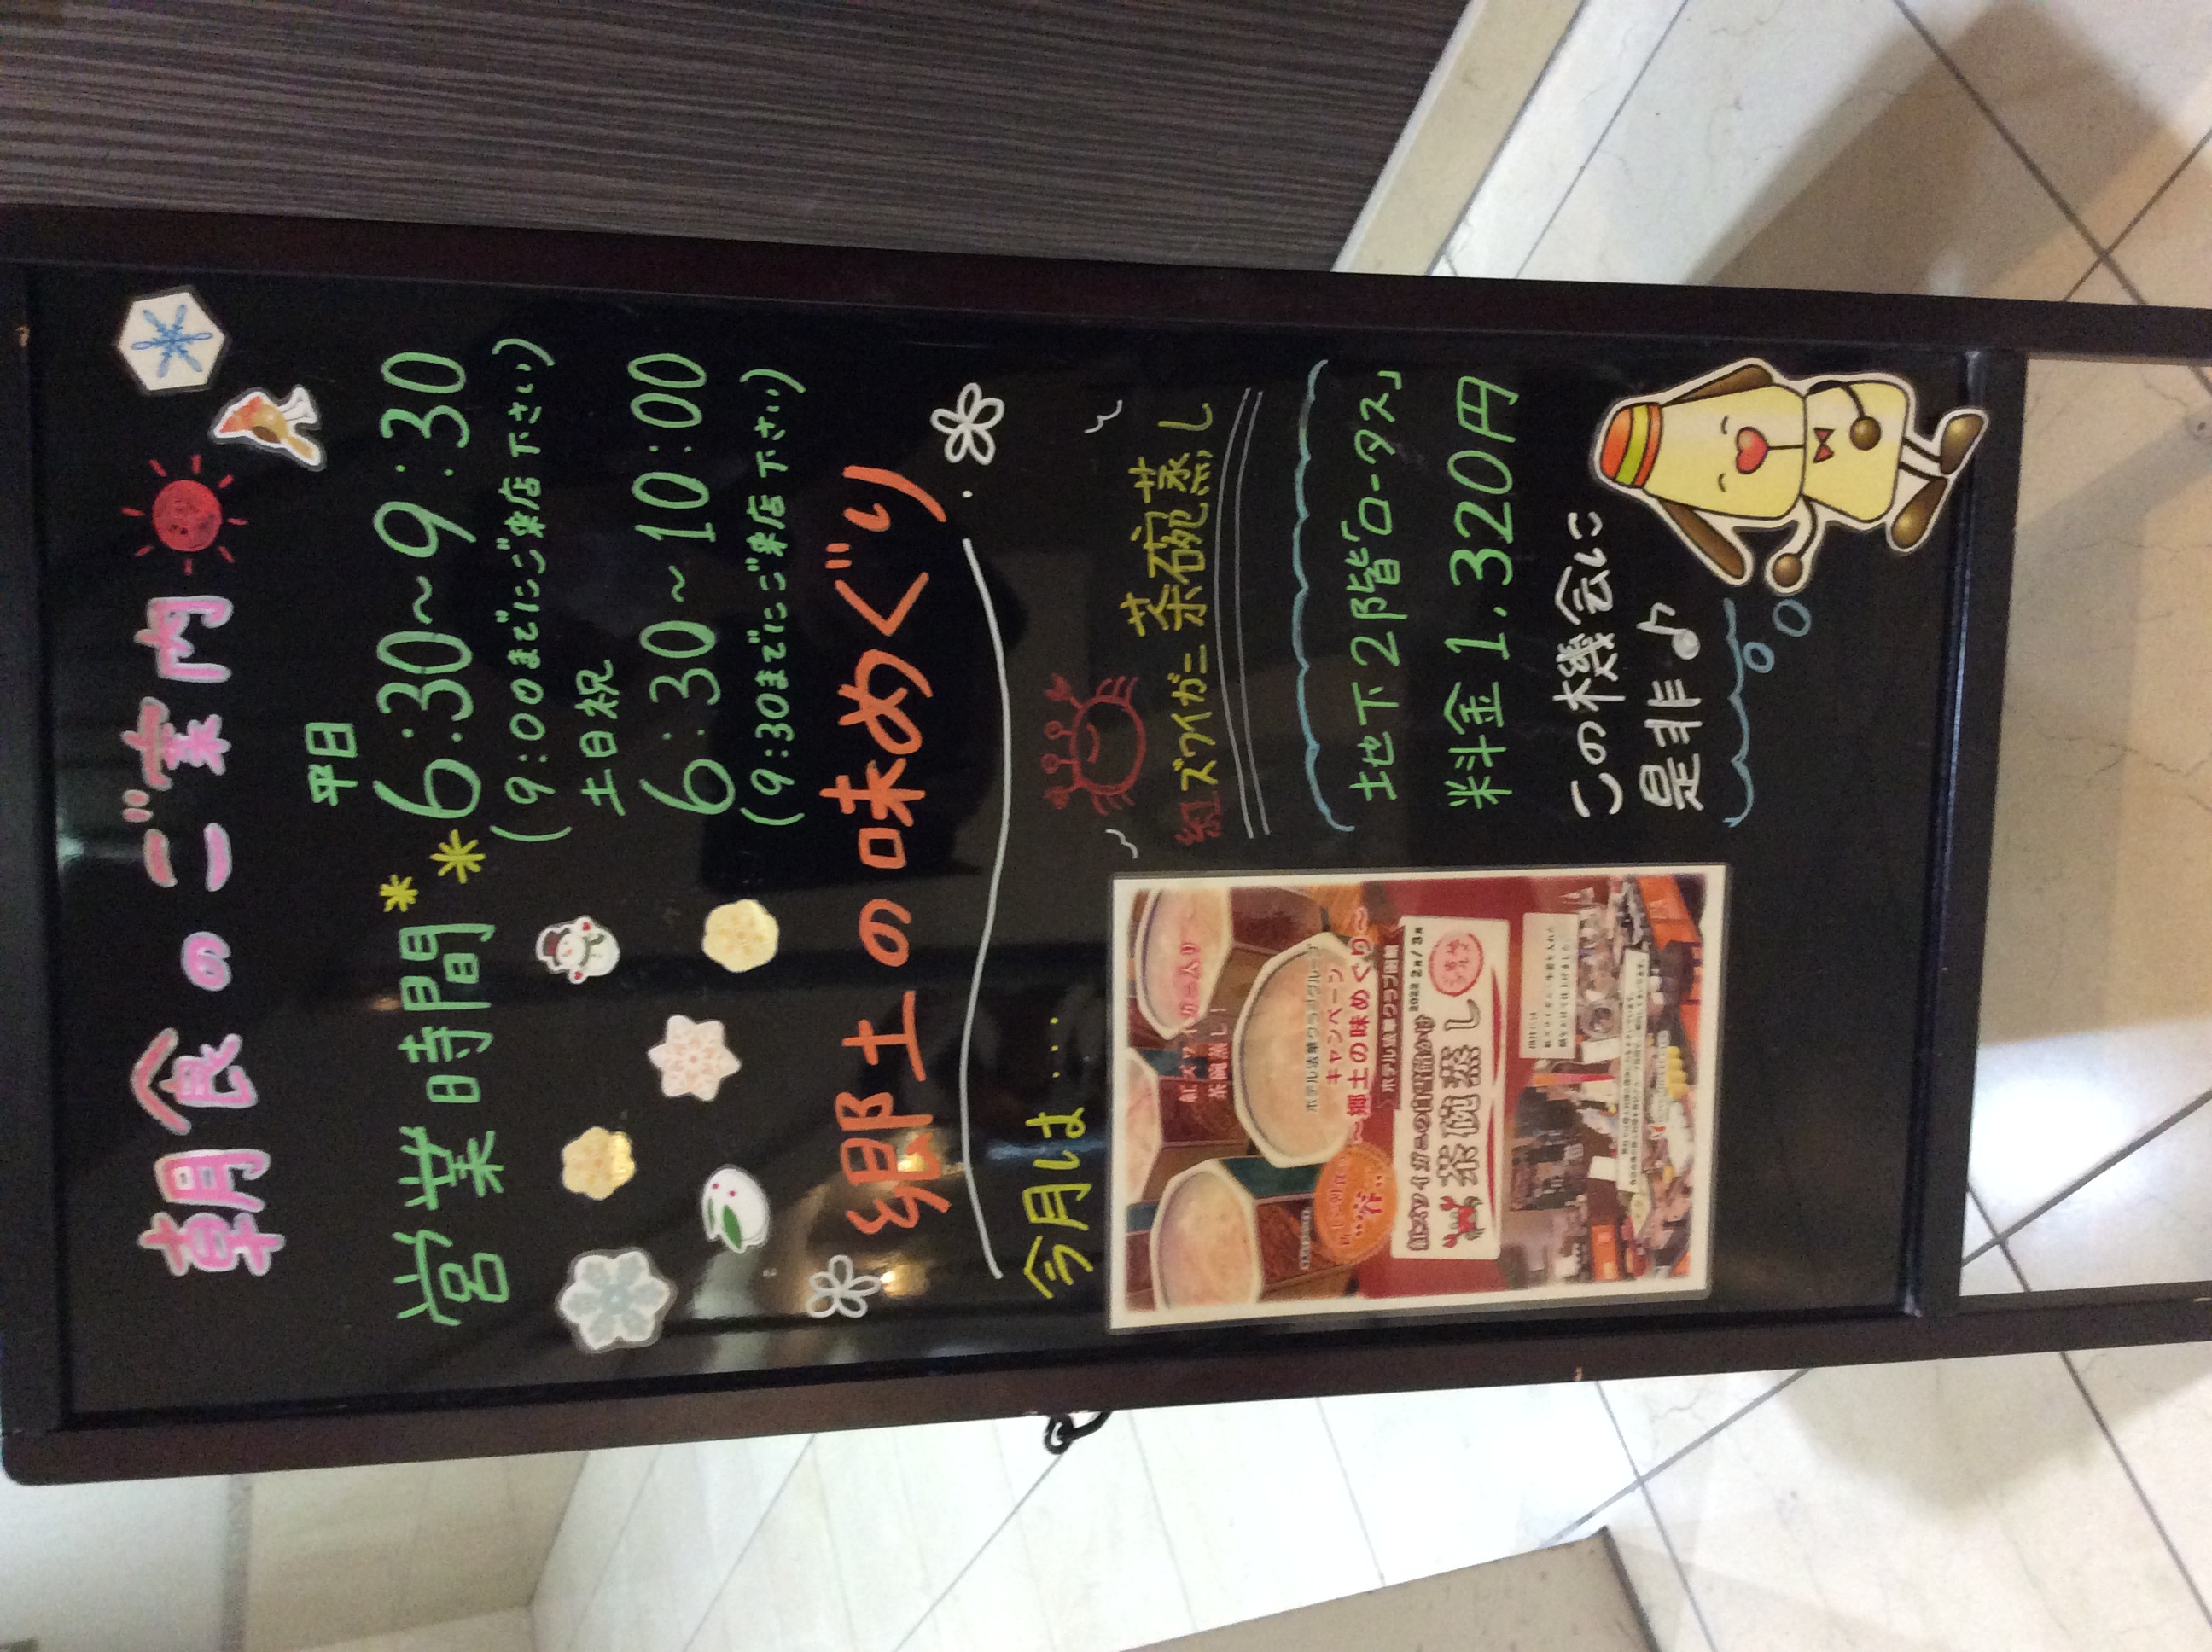 朝食のご案内
営業時間
平日
6:30~9:30
(9:00までにご来店下さい)
土日祝
6:30~10:00
(9:30までにご来店下さい)
郷土の味めぐり
今月は....
紅ズワイガニ 茶碗蒸し
紅ズワイガニ入り
茶碗蒸し!
ホテル法華クラブグループ
キャンペーン
~郷土の味めぐり~
ホテル法華クラブ函館
2022 2月/3月
茶碗蒸し
地下2階「ロータス」
料金1,320円
この機会に
是非♪